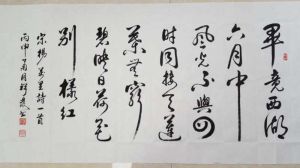 畢竟西湖
六月中
風光不與四
時同接天蓮
葉無窮
碧映日荷花
別樣紅
宋楊萬里詩一首
丙申月書